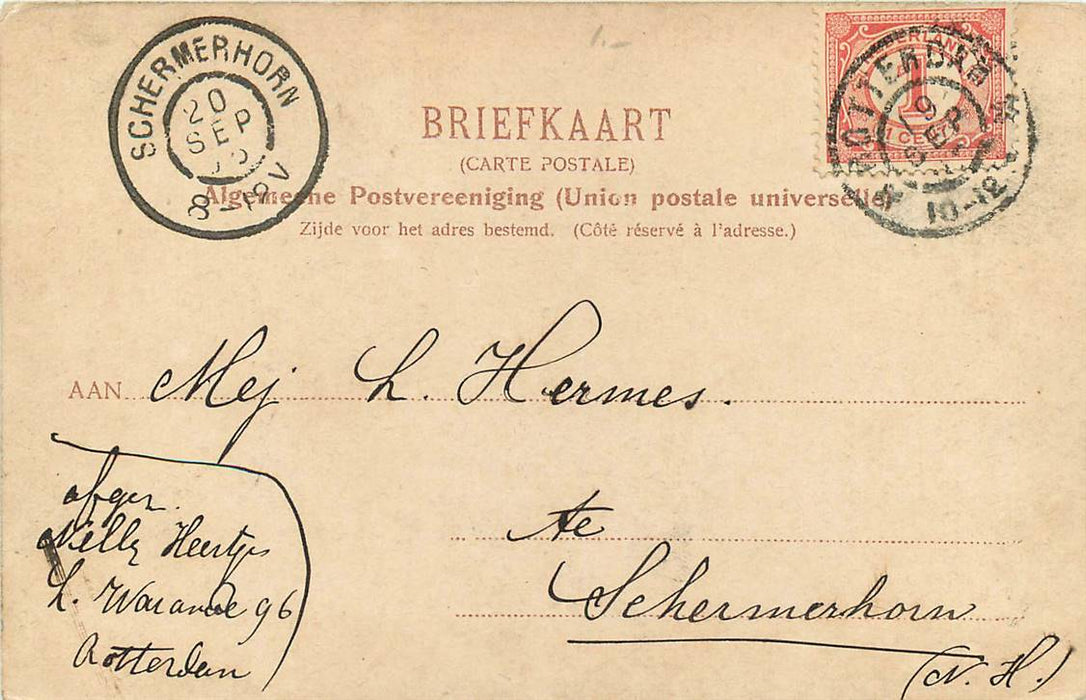 SCHERMERHORN
20
SEP
8-12V
NEDERLAND
1
1 CENT
ROTTERDAM
19
SEP
10-12
BRIEFKAART
(CARTE POSTALE)
Algemeene Postvereeniging (Union postale universelle)
Zijde voor het adres bestemd. (Côté réservé à l'adresse.)
AAN Mej L. Hermes.
te
Schermerhorn
(N. H.)
afgez.
Nelly Heertjes
L. Warande 96
Rotterdam